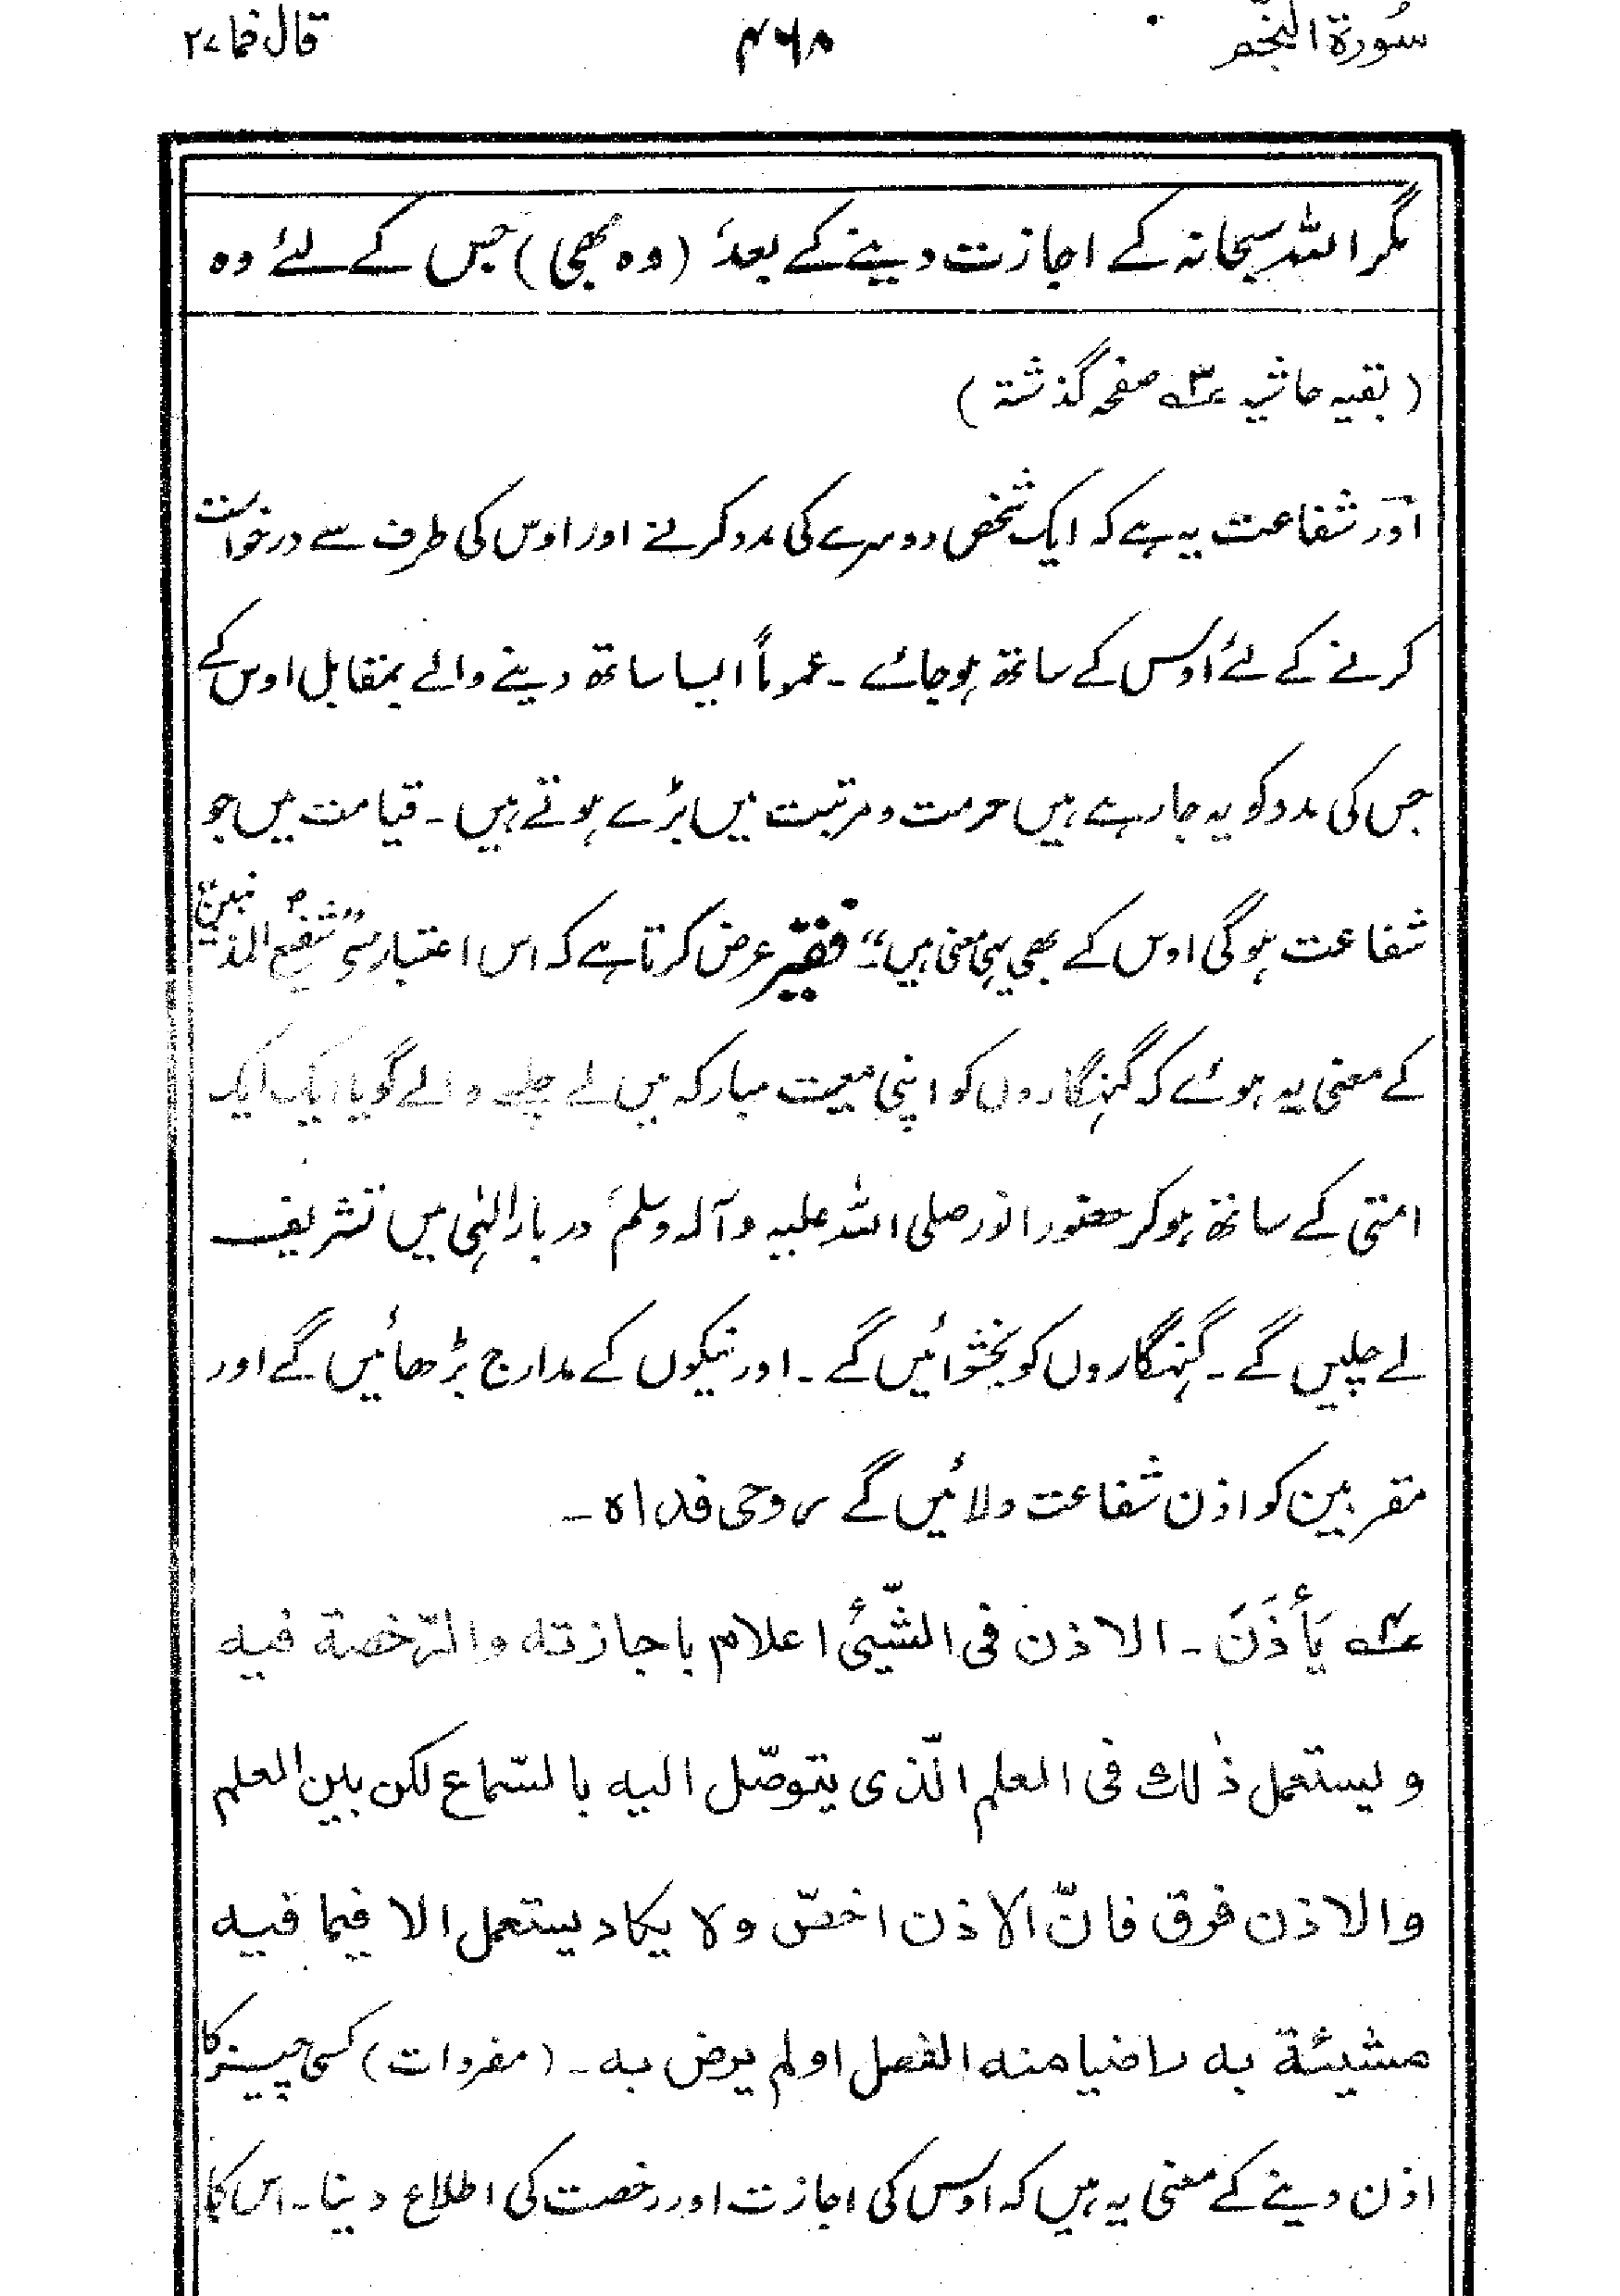 سُورۃ النّجم ۴۶۸ قال فما ۲۷
مگر اللہ سبحانہ کے اجازت دینے کے بعد (وہ بھی) جس کے لئے وہ
(بقیہ حاشیہ ۳؎ صفحہ گذشتہ)
اور شفاعت یہ ہے کہ ایک شخص دوسرے کی مدد کرنے اور اوس کی طرف سے درخواست
کرنے کے لئے اوس کے ساتھ ہو جائے ۔ عموماً ایسا ساتھ دینے والے بمقابل اوس کے
جس کی مدد کو یہ جا رہے ہیں حرمت و مرتبت میں بڑے ہوتے ہیں ۔ قیامت میں جو
شفاعت ہوگی اوس کے بھی یہی معنی ہیں“۔ فقیر عرض کرتا ہے کہ اس اعتبار سے ”شفیع المذنبین“
کے معنی یہ ہوئے کہ گنہگاروں کو اپنی معیت مبارکہ میں لے چلنے والے گویا ایک ایک
امتی کے ساتھ ہو کر حضور انور صلی اللہ علیہ و آلہ وسلم دربار الٰہی میں تشریف
لے چلیں گے ۔ گنہگاروں کو بخشوائیں گے ۔ اور نیکوں کے مدارج بڑھائیں گے اور
مقربین کو اذن شفاعت دلائیں گے روحی فداہ ۔
۴؎ یَأذَنَ ۔ الاذن فی الشّیئ اعلام باجازته والرّخصة فیه
ویستعمل ذٰلك فی العلم الّذی یتوصّل الیه بالسّماع لکن بین العلم
والاذن فرق فانّ الاذن اخصّ ولا یکاد یستعمل الا فیما فیه
مشیئة به راضیا منه الفعل او لم یرض به ۔ (مفردات) کسی چیز کا
اذن دینے کے معنی یہ ہیں کہ اوس کی اجازت اور رخصت کی اطلاع دینا ۔ اس کا